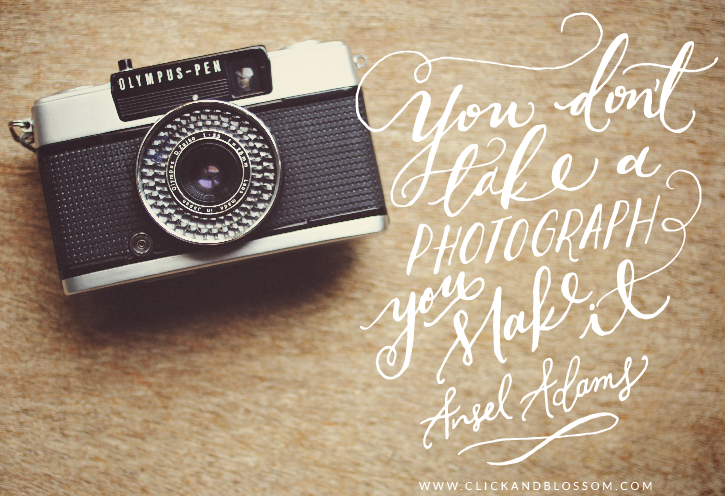 OLYMPUS-PEN
Olympus D.Zuiko 1:3.5 f=28mm Lens made in Japan
You don't
take a
PHOTOGRAPH
you
Make it
Ansel Adams
WWW.CLICKANDBLOSSOM.COM